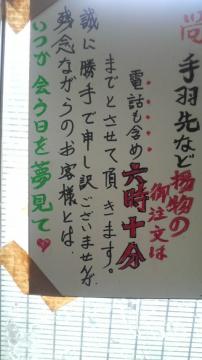 手羽先など揚物の
御注文は
電話も含め六時十分
までとさせて頂きます。
誠に勝手で申し訳ございませんが
残念ながらのお客様とは、
いつか会う日を夢見て